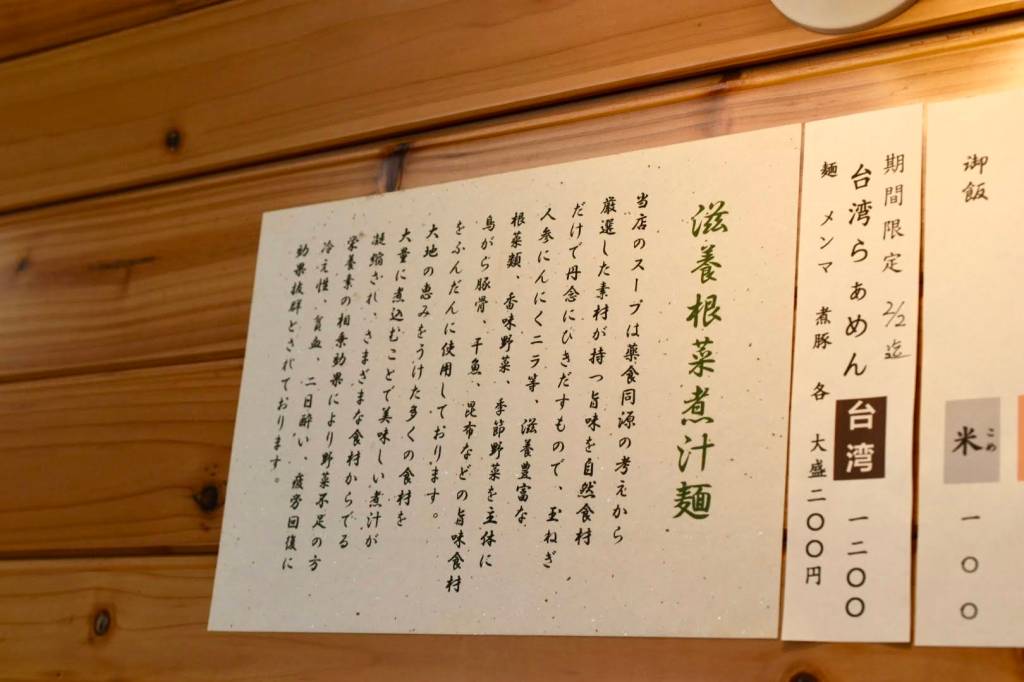 御飯
米
こめ
一〇〇
期間限定 2/2迄
台湾らぁめん 台湾 一二〇〇
麺 メンマ 煮豚 各 大盛二〇〇円
滋養根菜煮汁麺
当店のスープは薬食同源の考えから
厳選した素材が持つ旨味を自然食材
だけで丹念にひきだすもので、玉ねぎ
人参にんにくニラ等、滋養豊富な
根菜類、香味野菜、季節野菜を主体に
鳥がら豚骨、干魚、昆布などの旨味食材
をふんだんに使用しております。
大地の恵みをうけた多くの食材を
大量に煮込むことで美味しい煮汁が
凝縮され、さまざまな食材からでる
栄養素の相乗効果により野菜不足の方
冷え性、貧血、二日酔い、疲労回復に
効果抜群とされております。